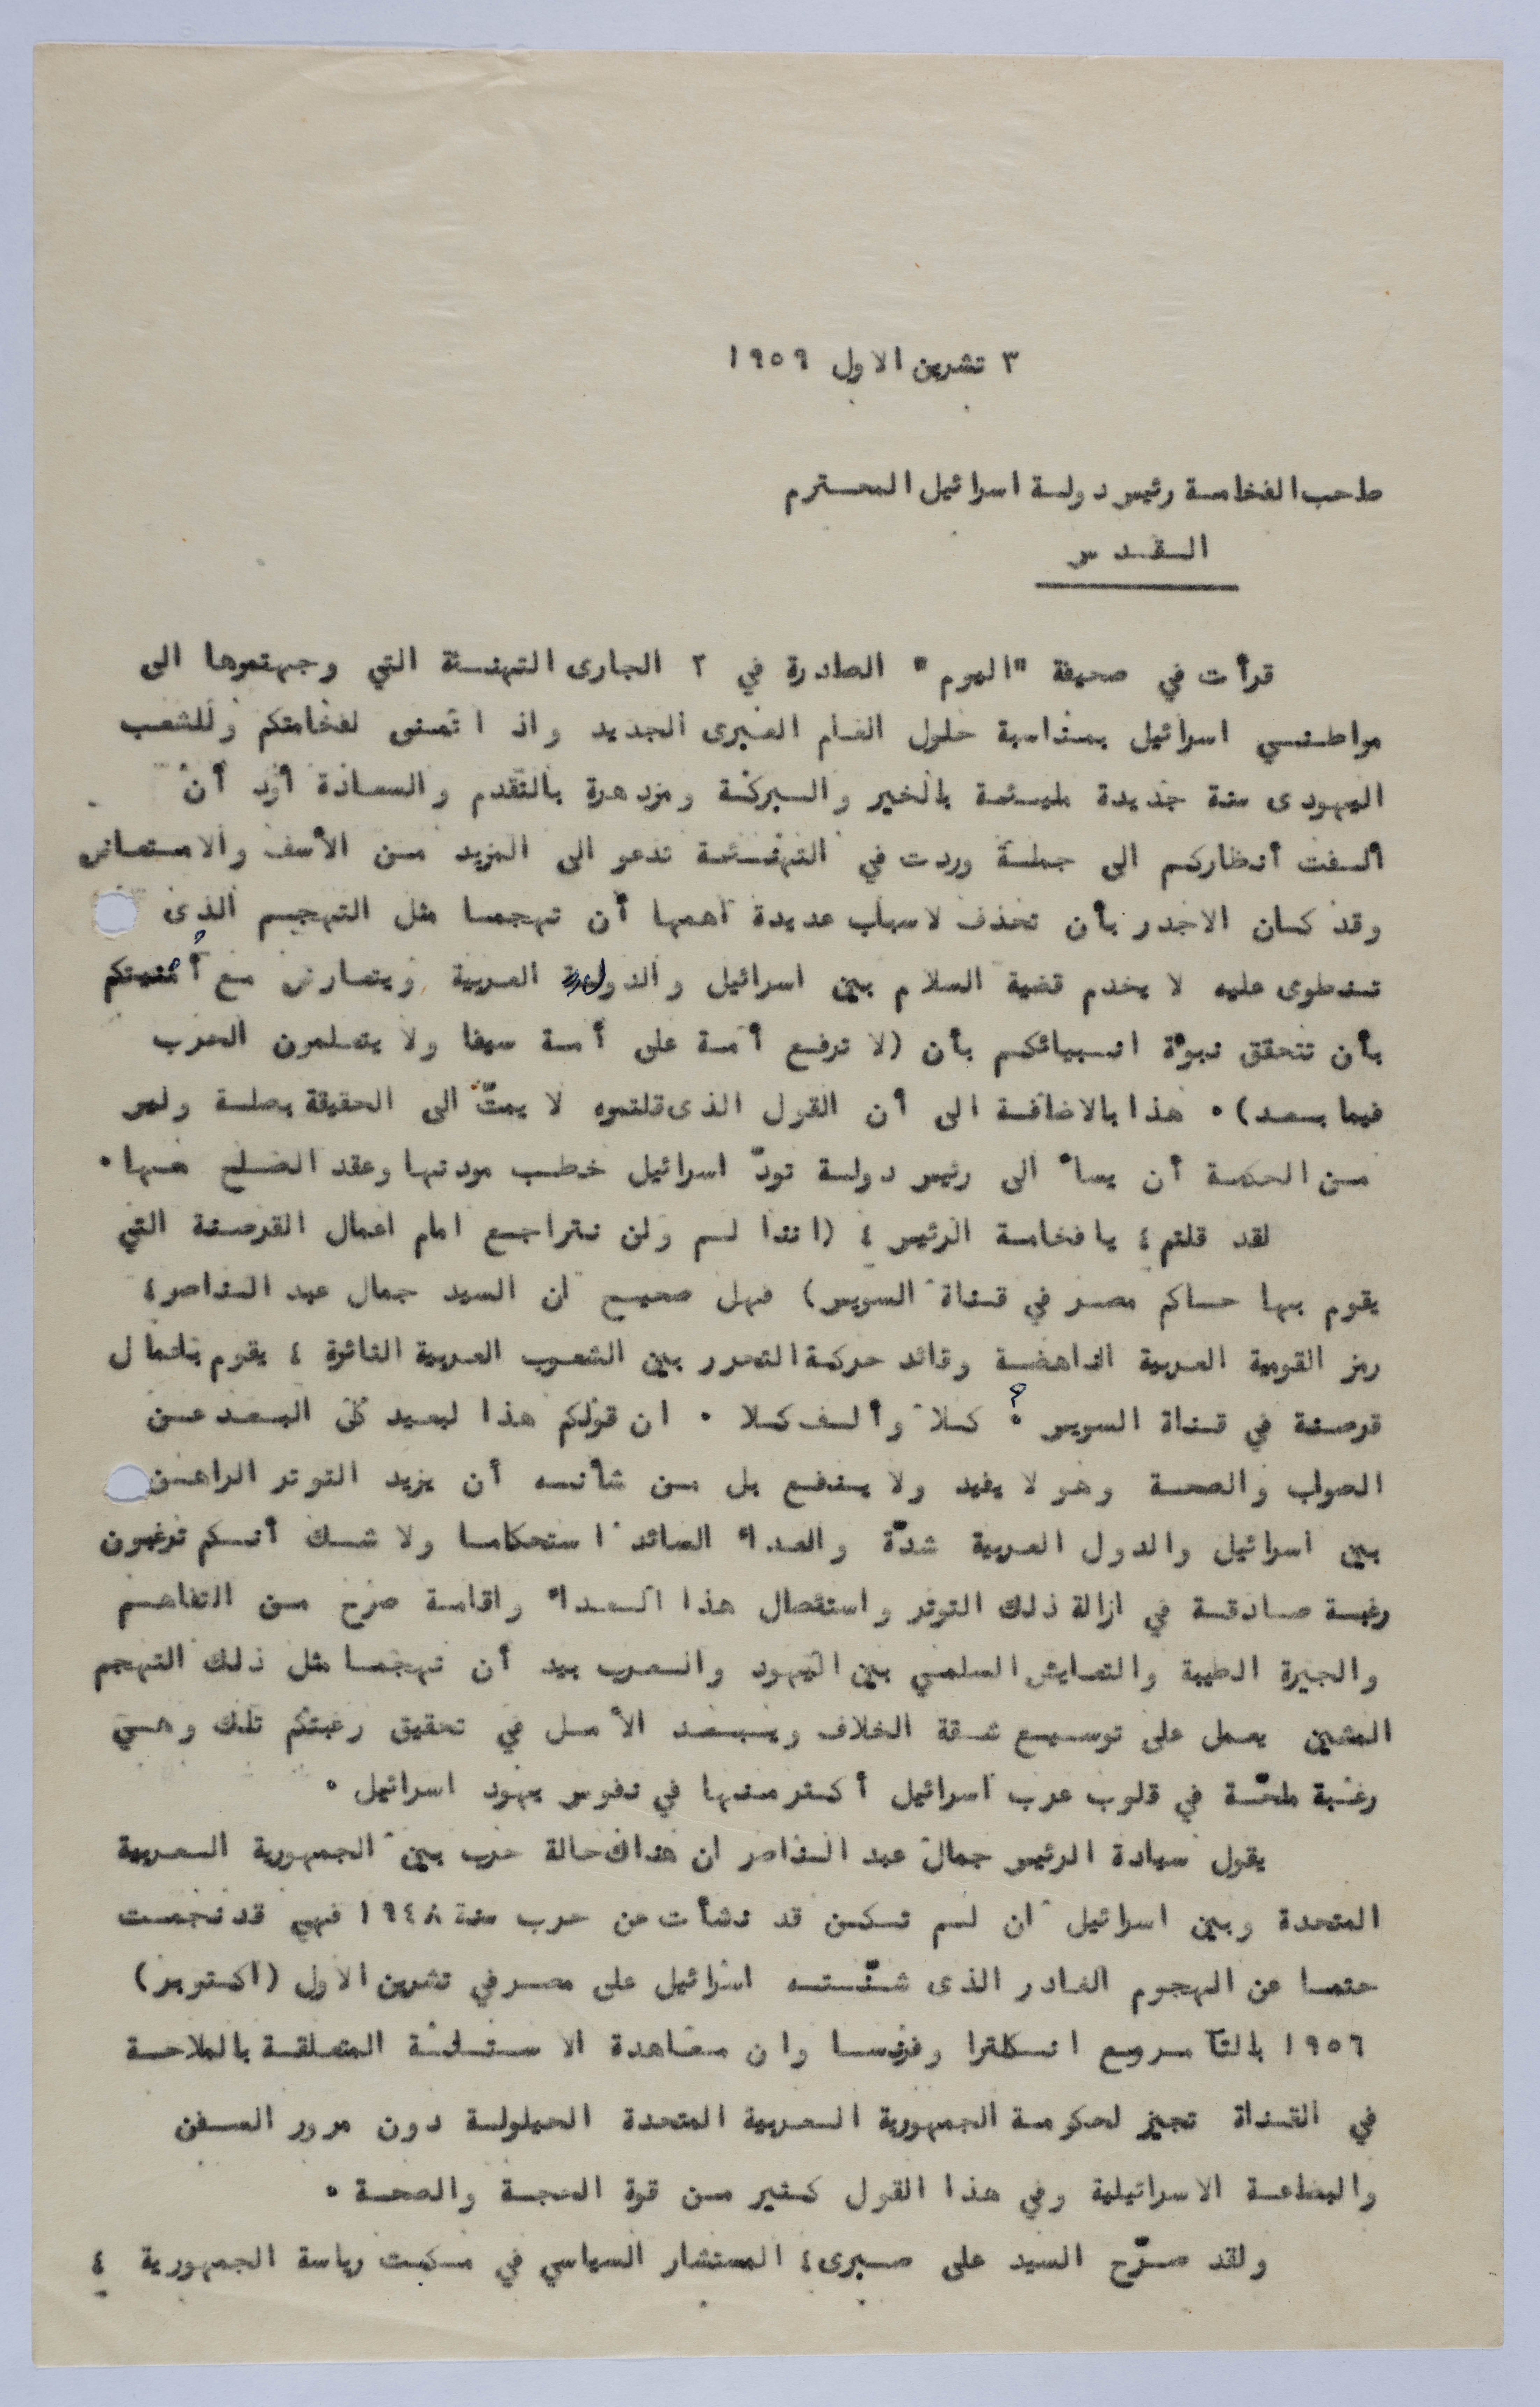 ٣ تشرين الاول ١٩٥٩
صاحب الفخامة رئيس دولة اسرائيل المحترم
القدس
قرأت في صحيفة "اليوم" الصادرة في ٢ الجارى التهنئة التي وجهتموها الى
مواطني اسرائيل بمناسبة حلول العام العبرى الجديد واذ اتمنى لفخامتكم وللشعب
اليهودى سنة جديدة مليئة بالخير والبركة ومزدهرة بالتقدم والسعادة أود أن
ألفت أنظاركم الى جملة وردت في التهنئة تدعو الى المزيد من الأسف والامتعاض
وقد كان الاجدر بأن تحذف لاسباب عديدة أهمها أن تهجما مثل التهجم الذى
تنطوى عليه لا يخدم قضية السلام بين اسرائيل والدول العربية ويتعارض مع أمنيتكم
بأن تتحقق نبوءة انبيائكم بأن (لا ترفع أمة على أمة سيفا ولا يتعلمون الحرب
فيما بعد). هذا بالاضافة الى أن القول الذى قلتموه لا يمتّ الى الحقيقة بصلة وليس
من الحكمة أن يساء الى رئيس دولة تودّ اسرائيل خطب مودتها وعقد الصلح معها.
لقد قلتم، يا فخامة الرئيس، (اننا لم ولن نتراجع امام اعمال القرصنة التي
يقوم بها حاكم مصر في قناة السويس) فهل صحيح ان السيد جمال عبد الناصر،
رمز القومية العربية الناهضة وقائد حركة التحرر بين الشعوب العربية الثائرة، يقوم باعمال
قرصنة في قناة السويس؟ كلا وألف كلا. ان قولكم هذا لبعيد كلّ البعد عن
الصواب والصحة وهو لا يفيد ولا ينفع بل من شأنه أن يزيد التوتر الراهن
بين اسرائيل والدول العربية شدّة والعداء السائد استحكاما ولا شك أنكم ترغبون
رغبة صادقة في ازالة ذلك التوتر واستئصال هذا العداء واقامة صرح من التفاهم
والجيرة الطيبة والتعايش السلمي بين اليهود والعرب بيد أن تهجما مثل ذلك التهجم
المشين يعمل على توسيع شقة الخلاف ويبعد الأمل في تحقيق رغبتكم تلك وهي
رغبة ملحّة في قلوب عرب اسرائيل أكثر منها في نفوس يهود اسرائيل.
يقول سيادة الرئيس جمال عبد الناصر ان هناك حالة حرب بين الجمهورية العربية
المتحدة وبين اسرائيل ان لم تكن قد نشأت عن حرب سنة ١٩٤٨ فهي قد نجمت
حتما عن الهجوم الغادر الذى شنّته اسرائيل على مصر في تشرين الاول (اكتوبر)
١٩٥٦ بالتآمر مع انكلترا وفرنسا وان معاهدة الاستانة المتعلقة بالملاحة
في القناة تجيز لحكومة الجمهورية العربية المتحدة الحيلولة دون مرور السفن
والبضاعة الاسرائيلية وفي هذا القول كثير من قوة الحجة والصحة.
ولقد صرّح السيد على صبرى، المستشار السياسي في مكتب رياسة الجمهورية،